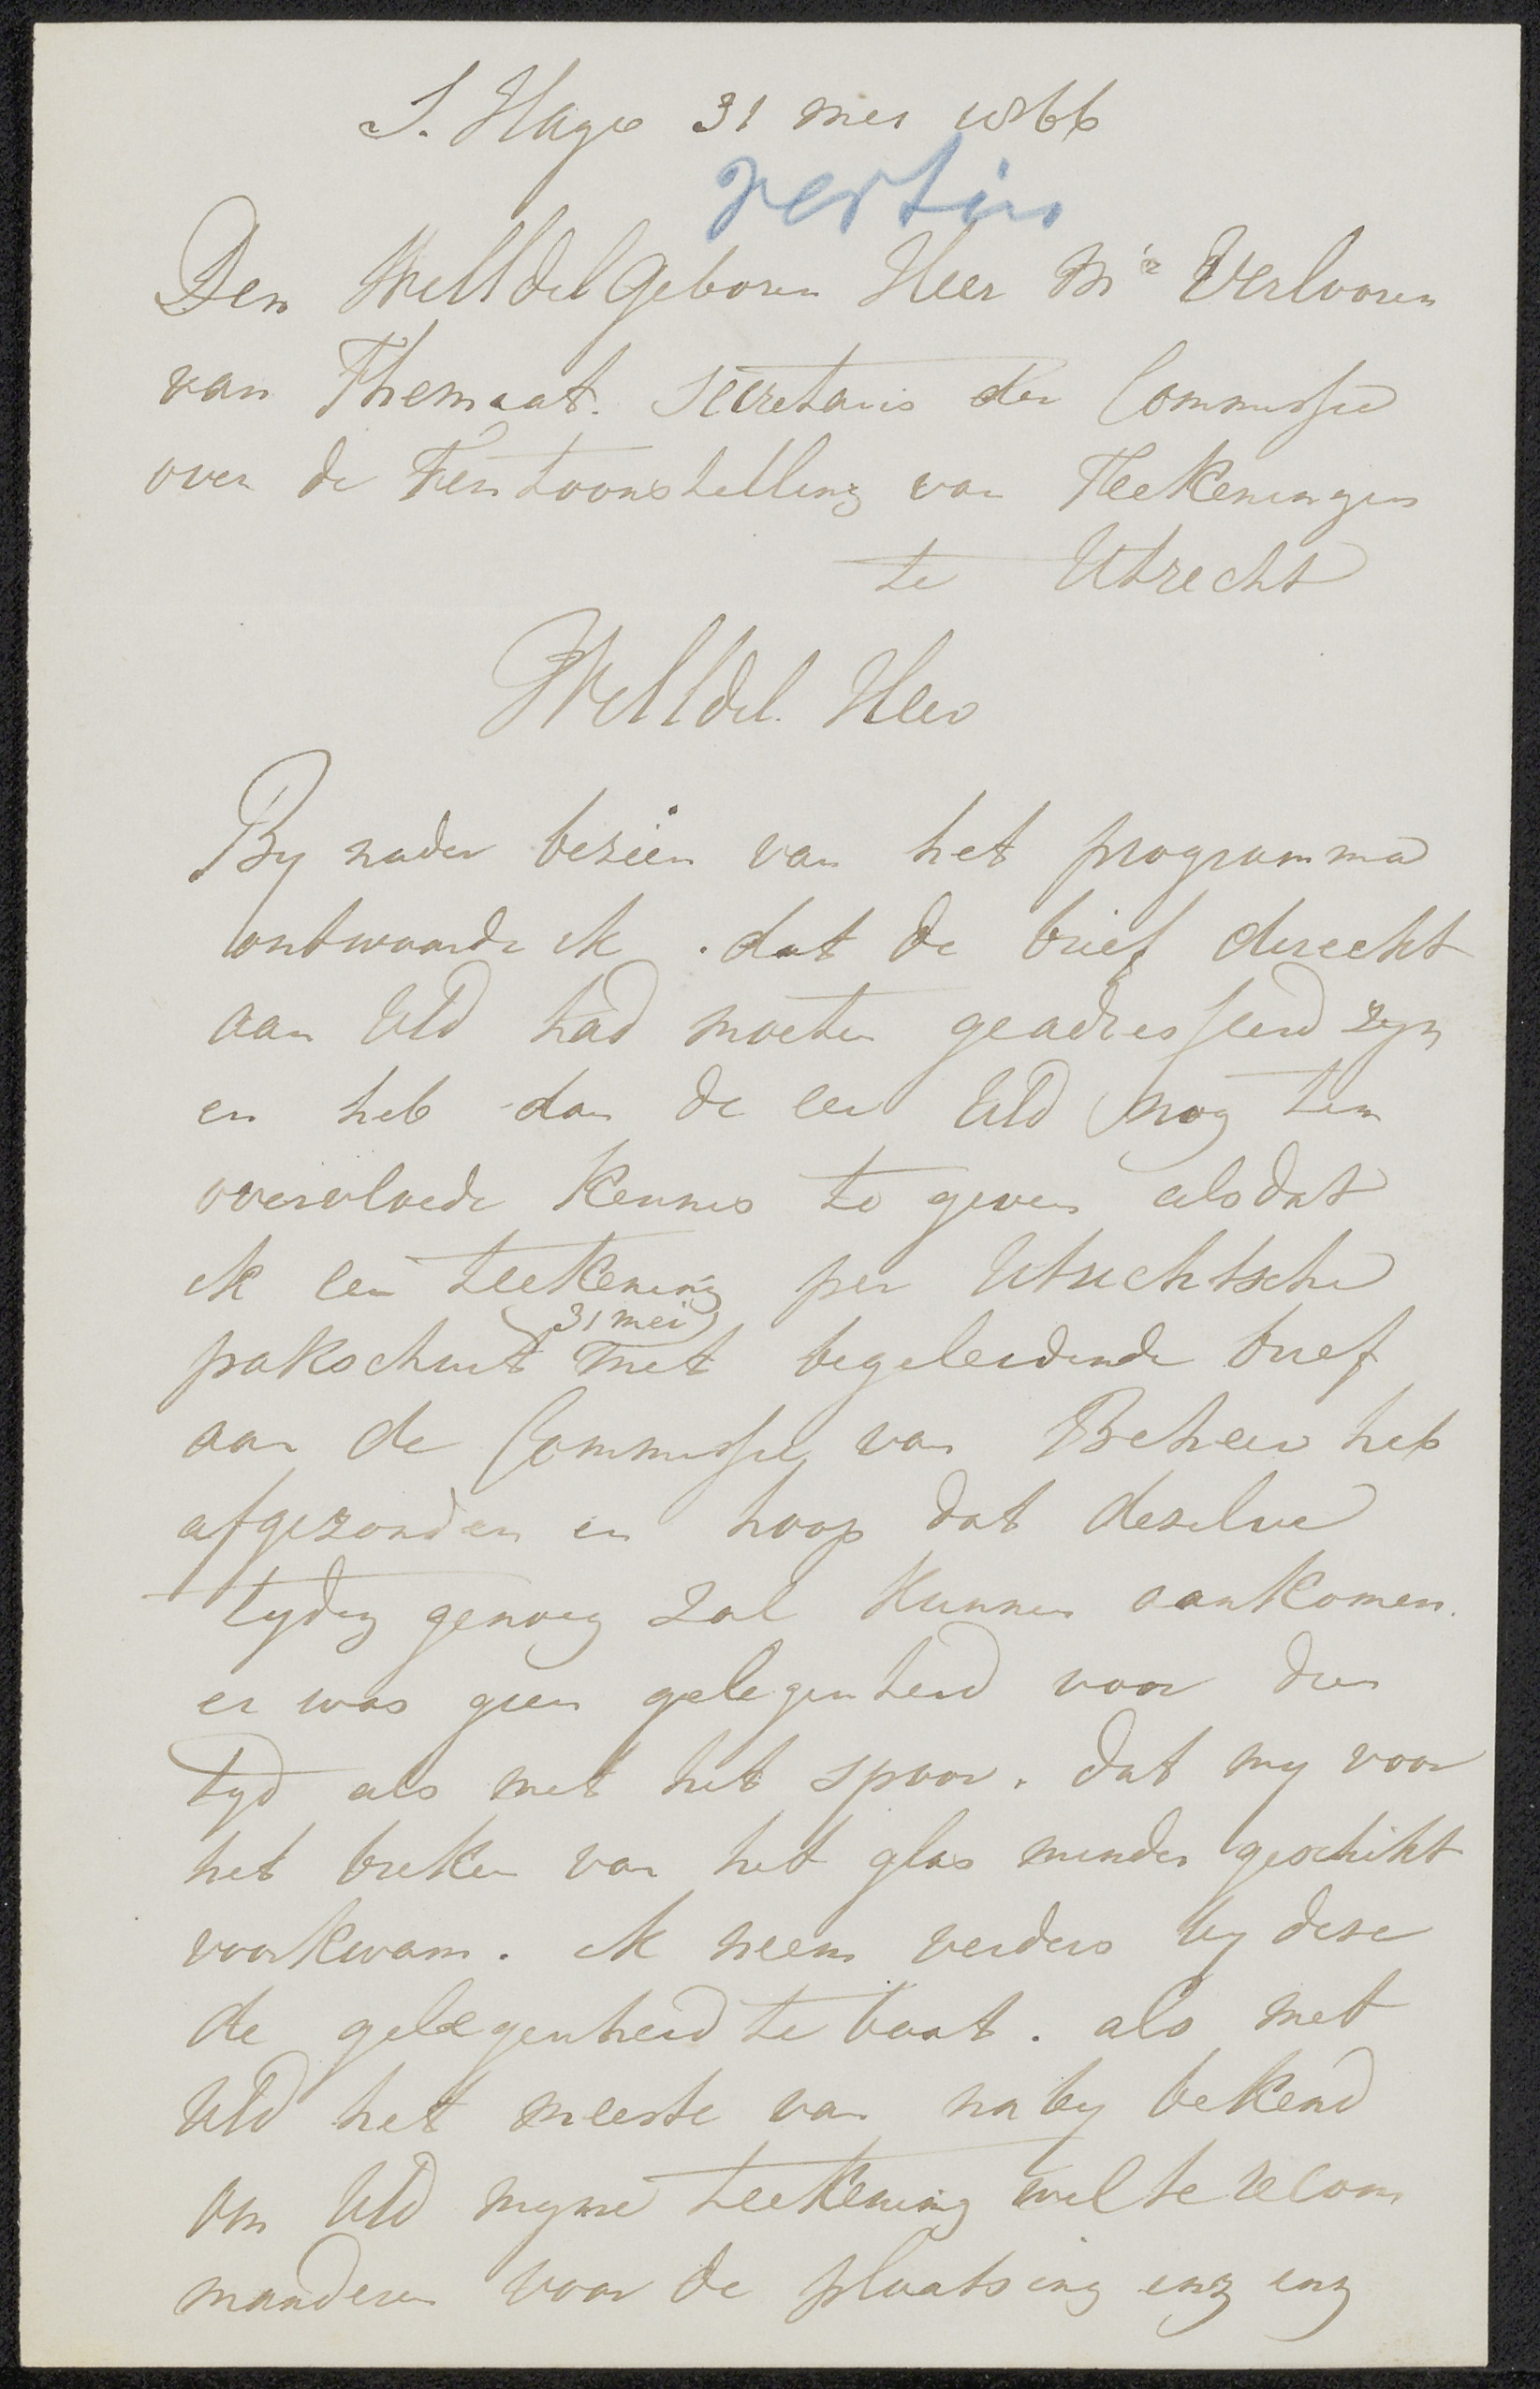 S. Hage 31 mei 1866
vertin
Den WelEdelGeboren Heer Mr Verloren
van Themaat. Secretaris der Commissie
over de Tentoonstelling van Teekeningen
te Utrecht
WelEdel. Heer
By nader bezien van het programma
ontwaarde ik. dat de brief direckt
aan UEd had moeten geadresseerd zyn
en heb dan de eer UEd nog ten
overvloede kennis te geven als dat
ik een teekening per Utrechtsche
31 mei
pakschuit met begeleidende brief
aan de Commissie van Beheer heb
afgezonden en hoop dat dezelve
tydig genoeg zal kunnen aankomen.
er was geen gelegenheid voor dien
tyd als met het spoor. dat my voor
het breken van het glas minder geschikt
voorkwam. ik neem verders by deze
de gelegenheid te baat. als met
UEd het meeste van naby bekend
om UEd myne teekening wel te recom
manderen voor de plaatsing enz enz